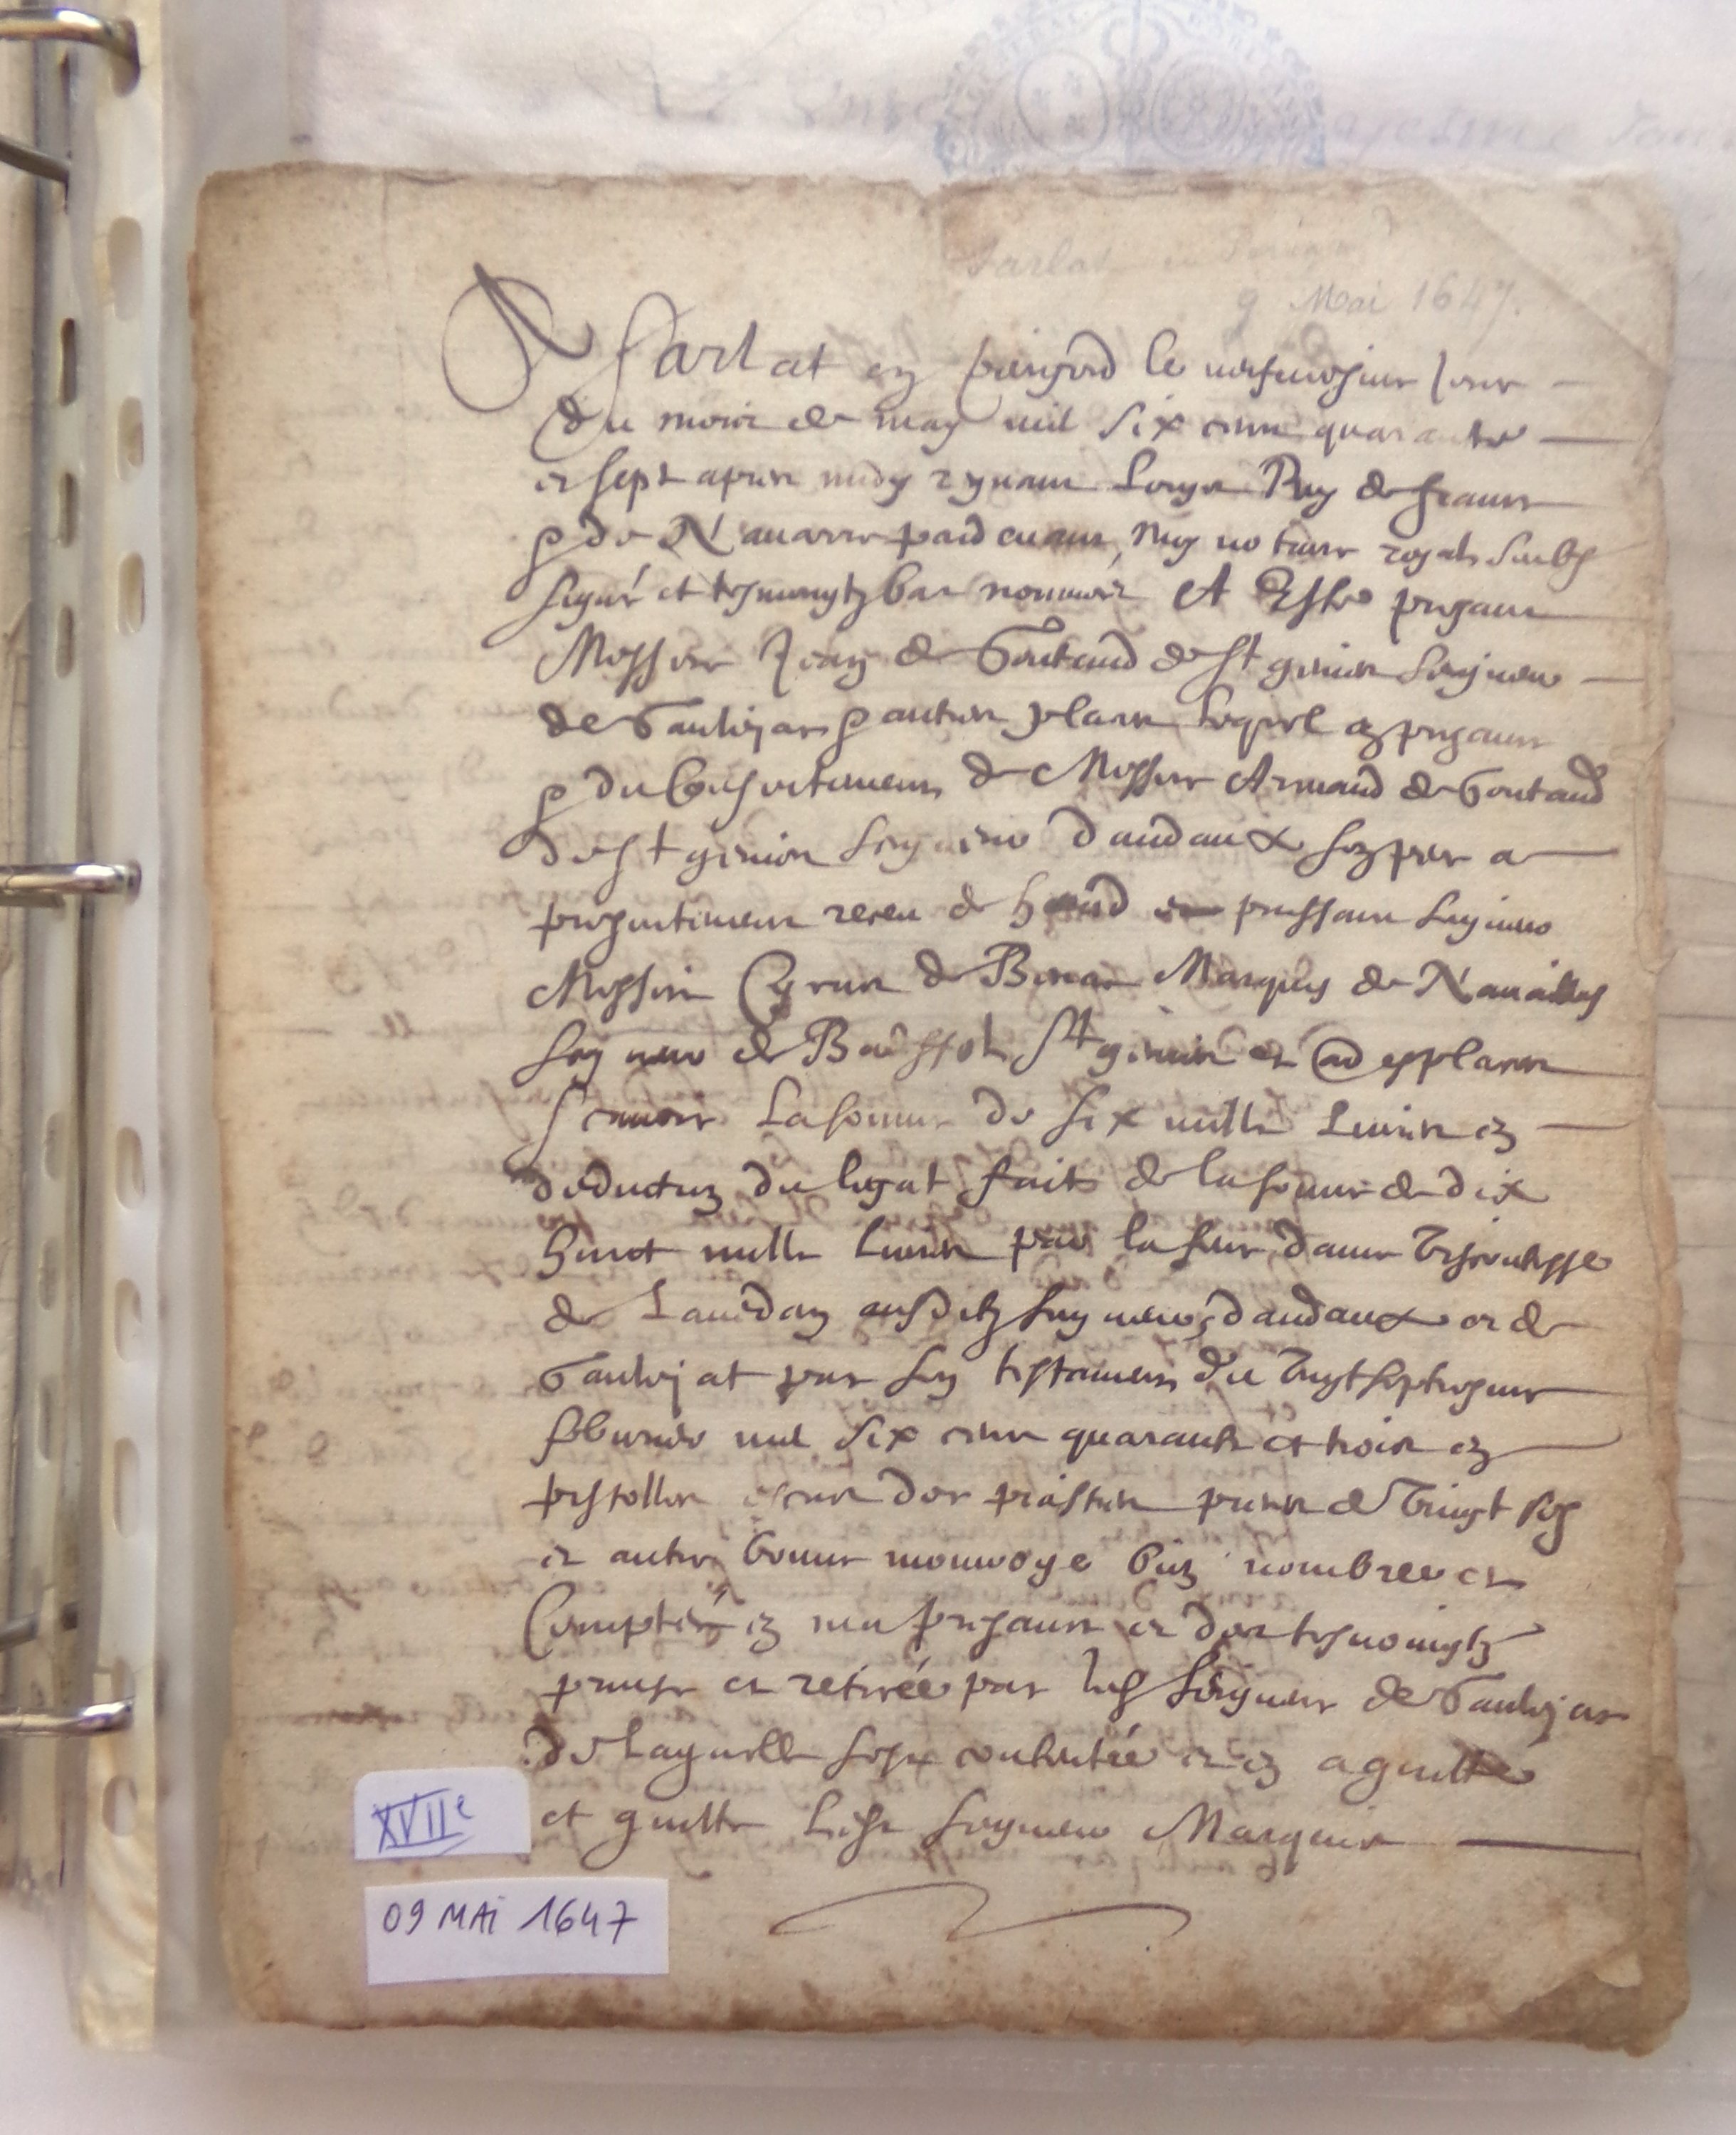 Sarlat en Périgord
9 Mai 1647.
A Sarlat en perigord le neufviesme jour
du mois de may mil six cens quarante
et sept apres midy regnant Louys Roy de france
& de Navarre pard evant moy notaire royal soubz
signé et tesmoingtz bas nommés A Esté presant
Messire Jean de Gontaud de St genies seigneur
de Gaulejac & autres places lequel en presance
& du consentement de Messire Armand de Gontaud
de St genies seigneur daudaux son pere a
presentement receu de hault et puissant seigneur
Messire Cyrus de Marquis de Navailles
seigneur de St genies et places
scavoir la somme de six mille livres en
deduction du legat faict de la somme de dix
huict mille livres par la feue dame Viscontesse
de Lavedan ausditz seigneurs daudaux et de
Gaulejac par son testament du vingt septiesme
mil six cens quarante et trois en
pistolles escus dor piastres pieces de vingt solz
et autre bonne monnoye bien nombree et
Comptée en ma presance et des tesmoingtz
prinse et retirée par led seigneur de Gaulejac
de laquelle sest contentée et en a quitte
et quitte led seigneur Marquis
XVIIe
09 MAI 1647